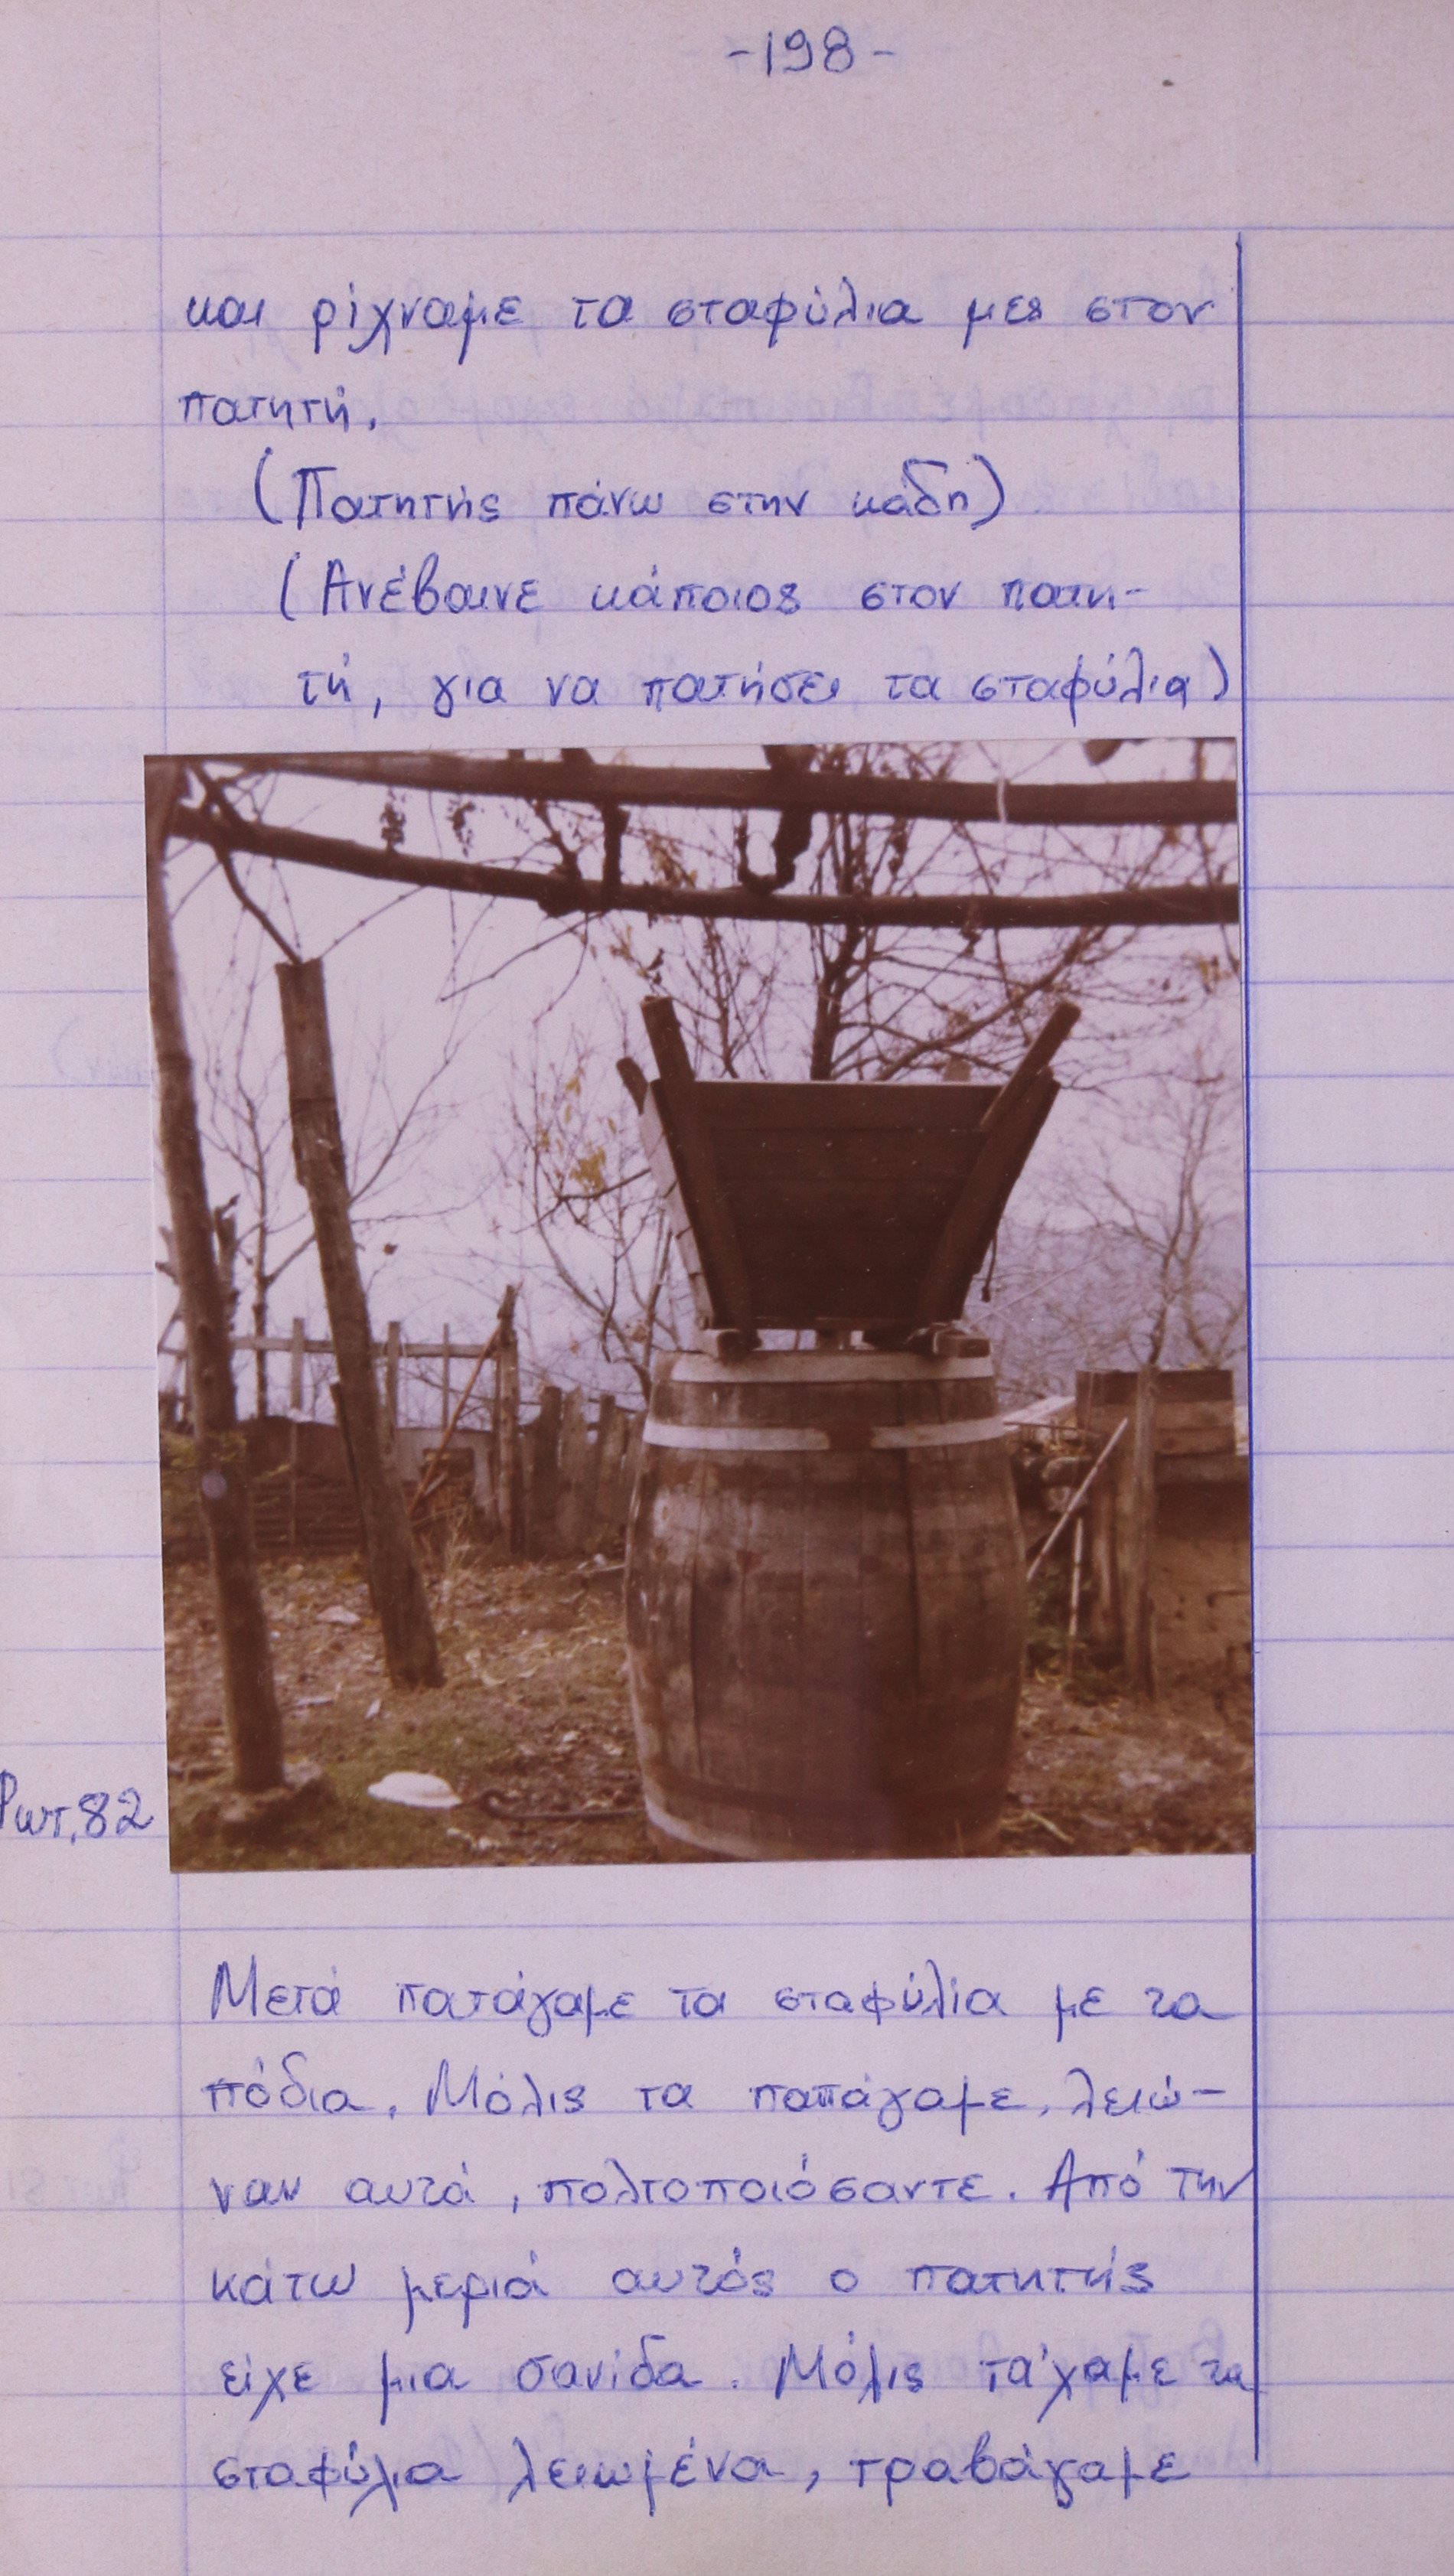 -198-
και ρίχναμε τα σταφύλια μες στον
πατητή.
(Πατητής πάνω στην κάδη)
(Ανέβαινε κάποιος στον πατη-
τή, για να πατήσει τα σταφύλια)
Φωτ. 82
Μετά πατάγαμε τα σταφύλια με τα
πόδια. Μόλις τα πατάγαμε, λειώ-
ναν αυτά, πολτοποιόσαντε. Από την
κάτω μεριά αυτός ο πατητής
είχε μια σανίδα. Μόλις τα'χαμε τα
σταφύλια λειωμένα, τραβάγαμε